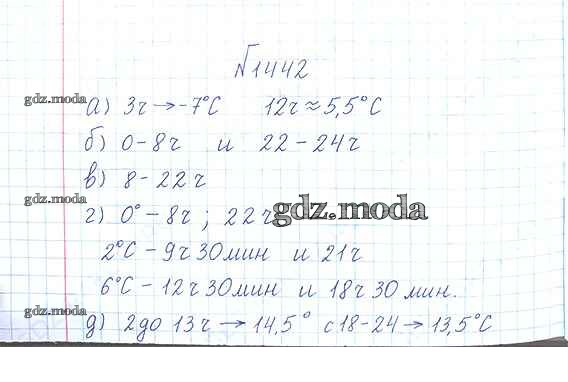 №1442
gdz.moda
а) 3ч → -7°С 12ч ≈ 5,5°С
б) 0-8ч и 22-24ч
gdz.moda
в) 8-22ч
gdz.moda
г) 0° - 8ч ; 22ч
gdz.moda
2°С - 9ч 30мин и 21ч
6°С - 12ч 30мин и 18ч 30 мин.
gdz.moda
д) 2до 13ч → 14,5° с18-24 → 13,5°С